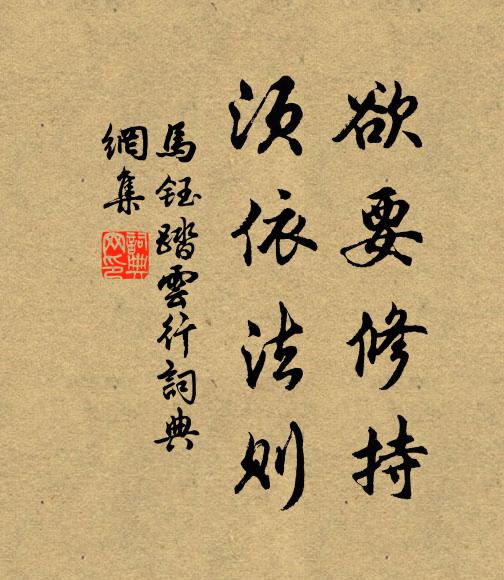 欲要修持
須依法則
馬鈺踏雲行詞典
網集
詞典
网印